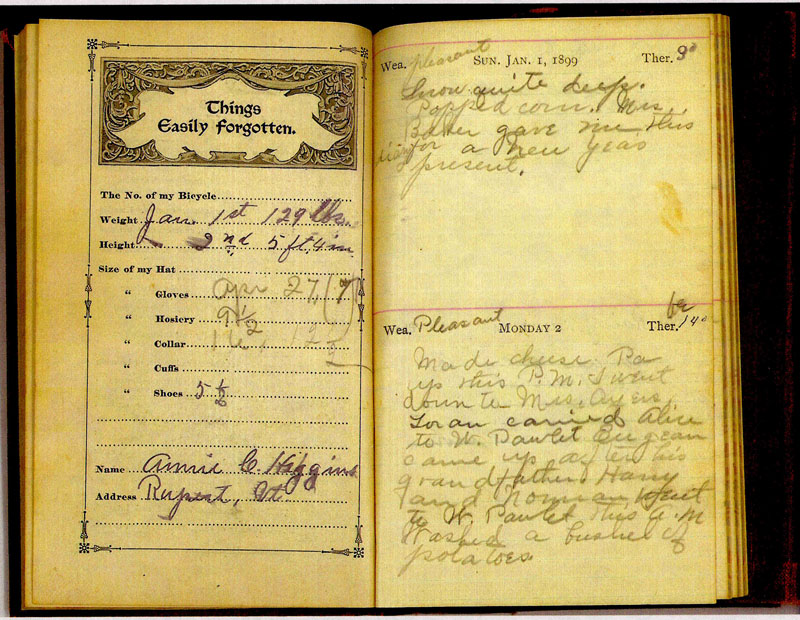 Things
Easily Forgotten.
The No. of my Bicycle
Weight Jan. 1st 129 lbs.
Height 2nd 5 ft, 4 in
Size of my Hat
" Gloves Apr 27, (7
" Hosiery 9 1/2
" Collar 12 1/2
" Cuffs
" Shoes 5 1/2
Name Annie C. Higgins
Address Rupert, Vt
Wea. pleasant SUN. JAN. 1, 1899 Ther. 3°
Snow quite deep.
Popped corn. Mrs.
Baker gave me this
for a new years
present.
Wea. Pleasant MONDAY 2 Ther. 14°
Made cheese. Pa
up this P.M. I went
down to Mrs. Ayers,
Loran carried Alice
to W. Pawlet Eugean
came up after his
grandfather. Harry
and Norman went
to W Pawlet this A.M
Washed a bushel of
potatoes.